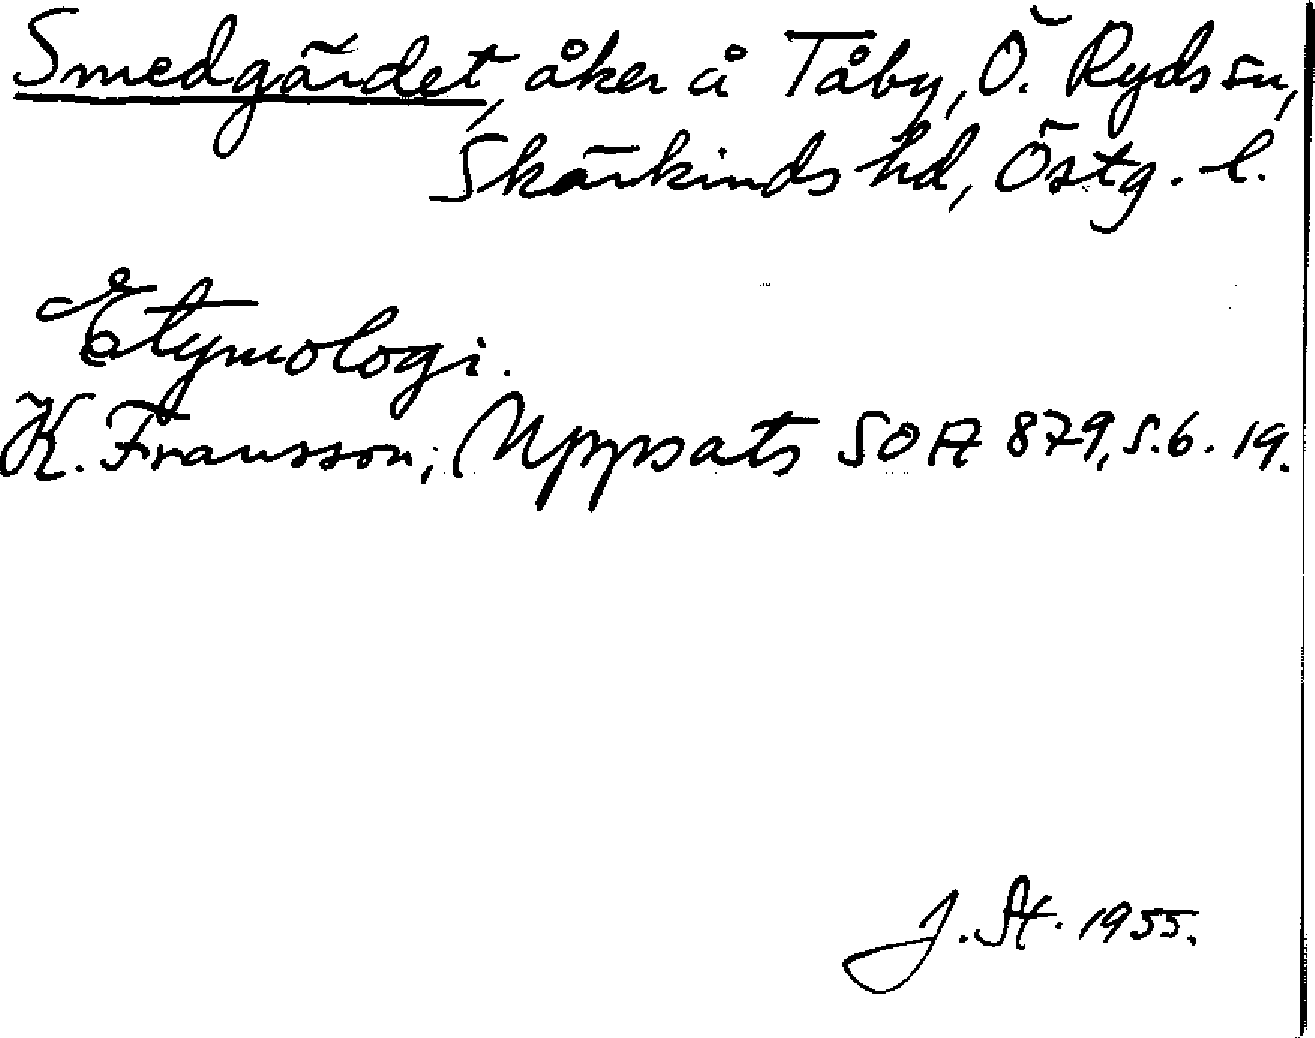 Smedgärdet, åker å Tåby, Ö. Ryds sn,
Skärkinds hd, Östg. l.
Etymologi.
K. Fransson, Uppsats SOA 879, s. 6. 19.
J. St. 1955.